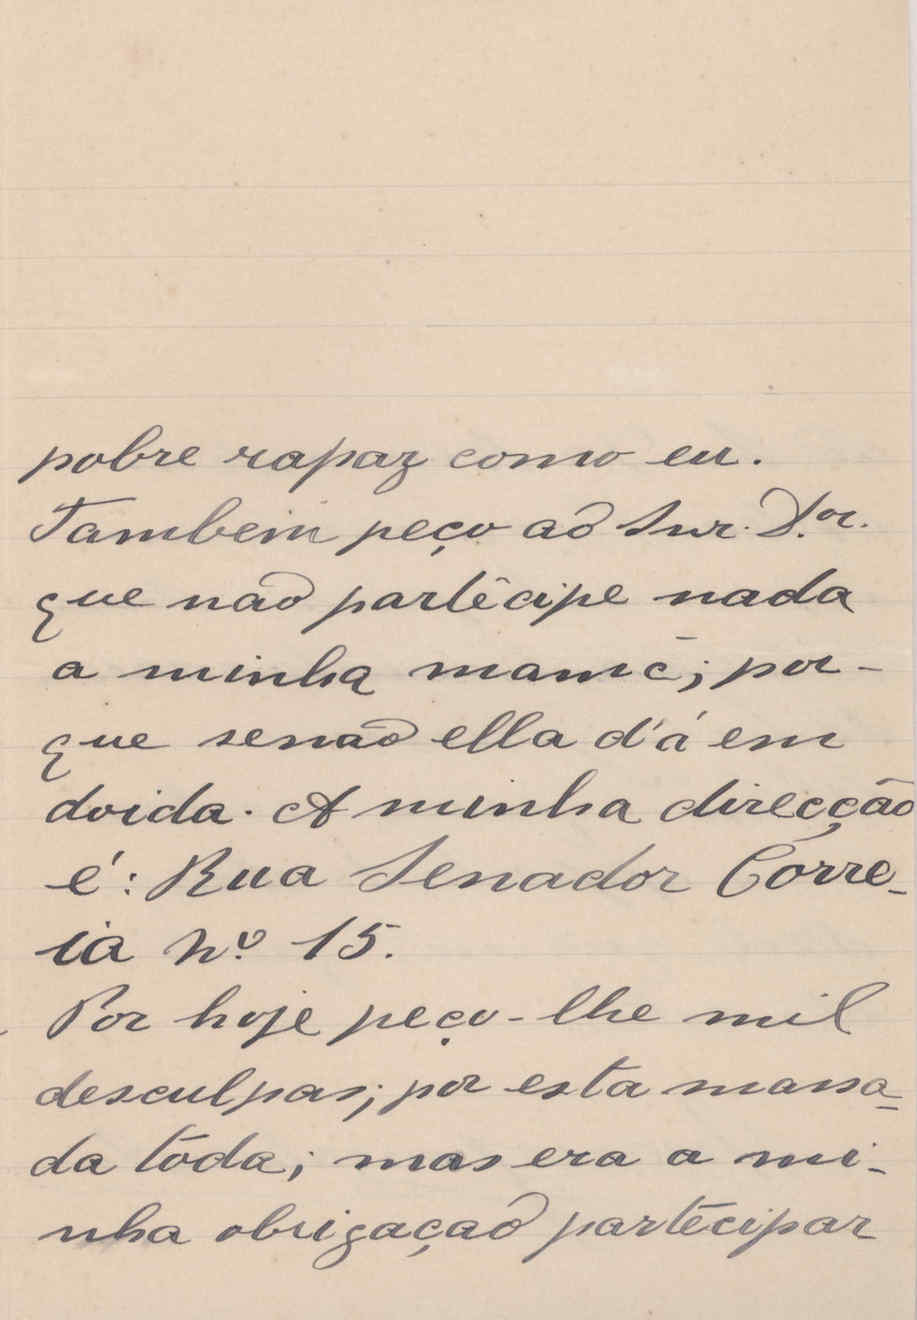 pobre rapaz como eu.
Tambem peço aõ Snr. D.or.
que naõ partecipe nada
a minha mamē; por-
que senaõ ella d'á em
doida. A minha direcção
é: Rua Senador Corre-
ia Nº 15.
Por hoje peço-lhe mil
desculpas; por esta massa-
da tōda; mas era a mi-
nha obrigaçaõ partēcipar